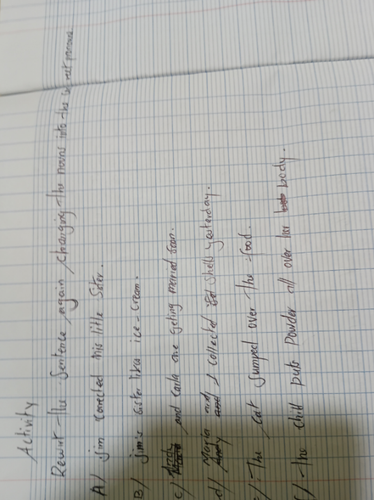 Activity
Rewrit the Sentence again, Changing the nouns into the correct pronouns
A) Jim corrected his little Sister.
B) Jim's sister like ice-cream.
c) Andy and carla are geting married soon.
d) Maria and I collected shells yesterday.
e) The cat Jumped over the food.
/ the chill puts Powder all over her body.